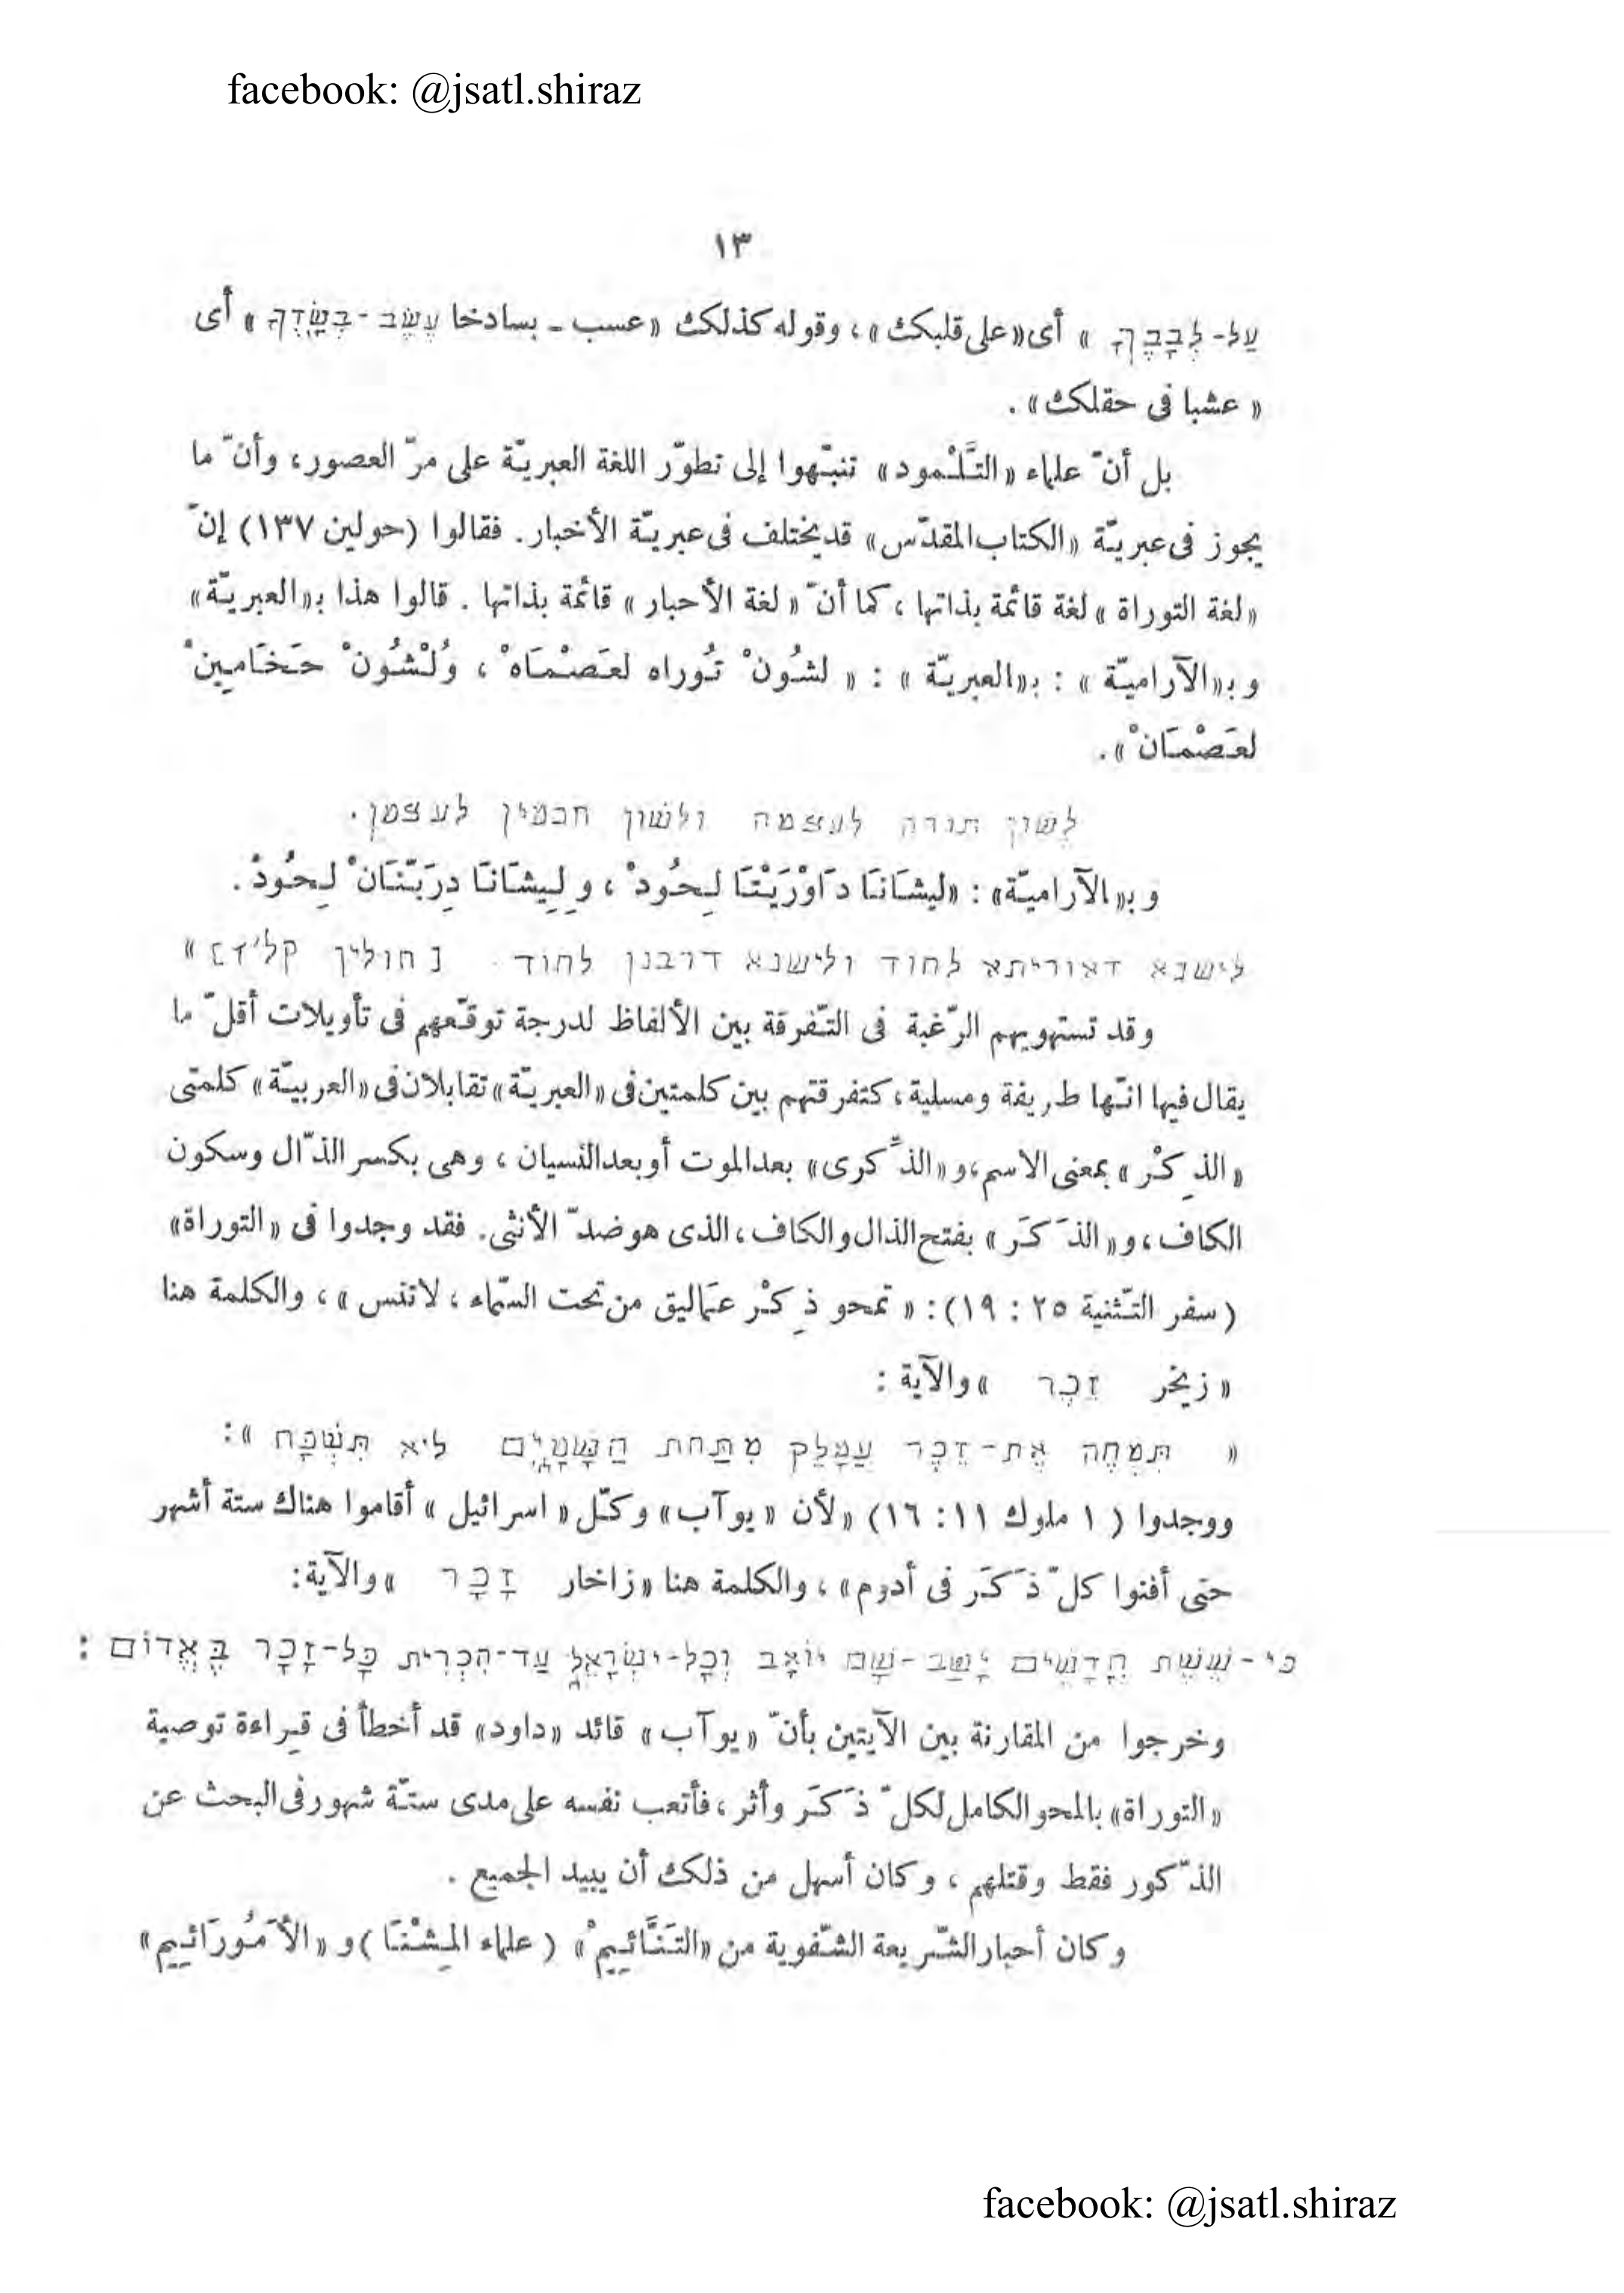 facebook: @jsatl.shiraz
١٣
עַל-לְבָבֶךָ » أى «على قلبك»، وقوله كذلك «عسب ـ بسادخا עֵשֶׂב-בְּשָׂדְךָ » أى
« عشبا فى حقلك» .
بل أنّ علماء «التَّلْمود» تنبّهوا إلى تطوّر اللغة العبريّة على مرّ العصور، وأنّ ما
يجوز فى عبريّة «الكتاب المقدّس» قد يختلف فى عبريّة الأخبار. فقالوا (حولين ١٣٧) إنّ
«لغة التوراة» لغة قائمة بذاتها ، كما أنّ « لغة الأحبار » قائمة بذاتها . قالوا هذا بـ«العبريّة»
و بـ«الآراميّة » : بـ«العبريّة » : « لشُونْ تُوراه لعَصْمَاهْ ، وُلْشُونْ حَخَامِينْ
لعَصْمَانْ».
לְשׁוֹן תורה לעצמה ולשון חכמין לעצמן.
و بـ«الآراميّة» : «ليشَانَا دَاوْرَيْتَا لِحُودْ ، و لِيشَانَا دِرَبّنَانْ لِحُودْ .
לישנא דאוריתא לחוד ולישנא דרבנן לחוד . [חולין קל״ז] »
وقد تستهويهم الرّغبة فى التّفرقة بين الألفاظ لدرجة توقّعهم فى تأويلات أقلّ ما
يقال فيها انّها طريفة ومسلية، كتفرقتهم بين كلمتين فى «العبريّة» تقابلان فى «العربيّة» كلمتى
«الذِكْر» بمعنى الاسم، و «الذّكرى» بعد الموت أو بعد النسيان ، وهى بكسر الذّال وسكون
الكاف، و «الذَكَر» بفتح الذال والكاف، الذى هو ضدّ الأنثى. فقد وجدوا فى «التوراة»
(سفر التّثنية ٢٥ : ١٩) : « تمحو ذِكْر عَماليق من تحت السّماء ، لا تنس » ، والكلمة هنا
« زيخر זֵכֶר » والآية :
« תִּמְחֶה אֶת-זֵכֶר עֲמָלֵק מִתַּחַת הַשָּׁמָיִם לֹא תִּשְׁכָּח »:
ووجدوا ( ١ ملوك ١١ : ١٦) «لأن « يوآب» وكلّ « اسرائيل » أقاموا هناك ستة أشهر
حتى أفنوا كلّ ذَكَر فى أدوم» ، والكلمة هنا «زاخار זָכָר » والآية:
כי-שֵׁשֶׁת חֳדָשִׁים יָשַׁב-שָׁם יוֹאָב וְכָל-יִשְׂרָאֵל עַד-הִכְרִית כָּל-זָכָר בֶּאֱדוֹם :
وخرجوا من المقارنة بين الآيتين بأنّ « يوآب » قائد «داود» قد أخطأ فى قراءة توصية
«التوراة» بالمحو الكامل لكلّ ذَكَر وأثر، فأتعب نفسه على مدى ستّة شهور فى البحث عن
الذّكور فقط وقتلهم ، وكان أسهل من ذلك أن يبيد الجميع .
وكان أحبار الشّريعة الشّفوية من «التَنَّائِيمْ» ( علماء المِشْنَا ) و «الأَمُورَائِيم»
facebook: @jsatl.shiraz